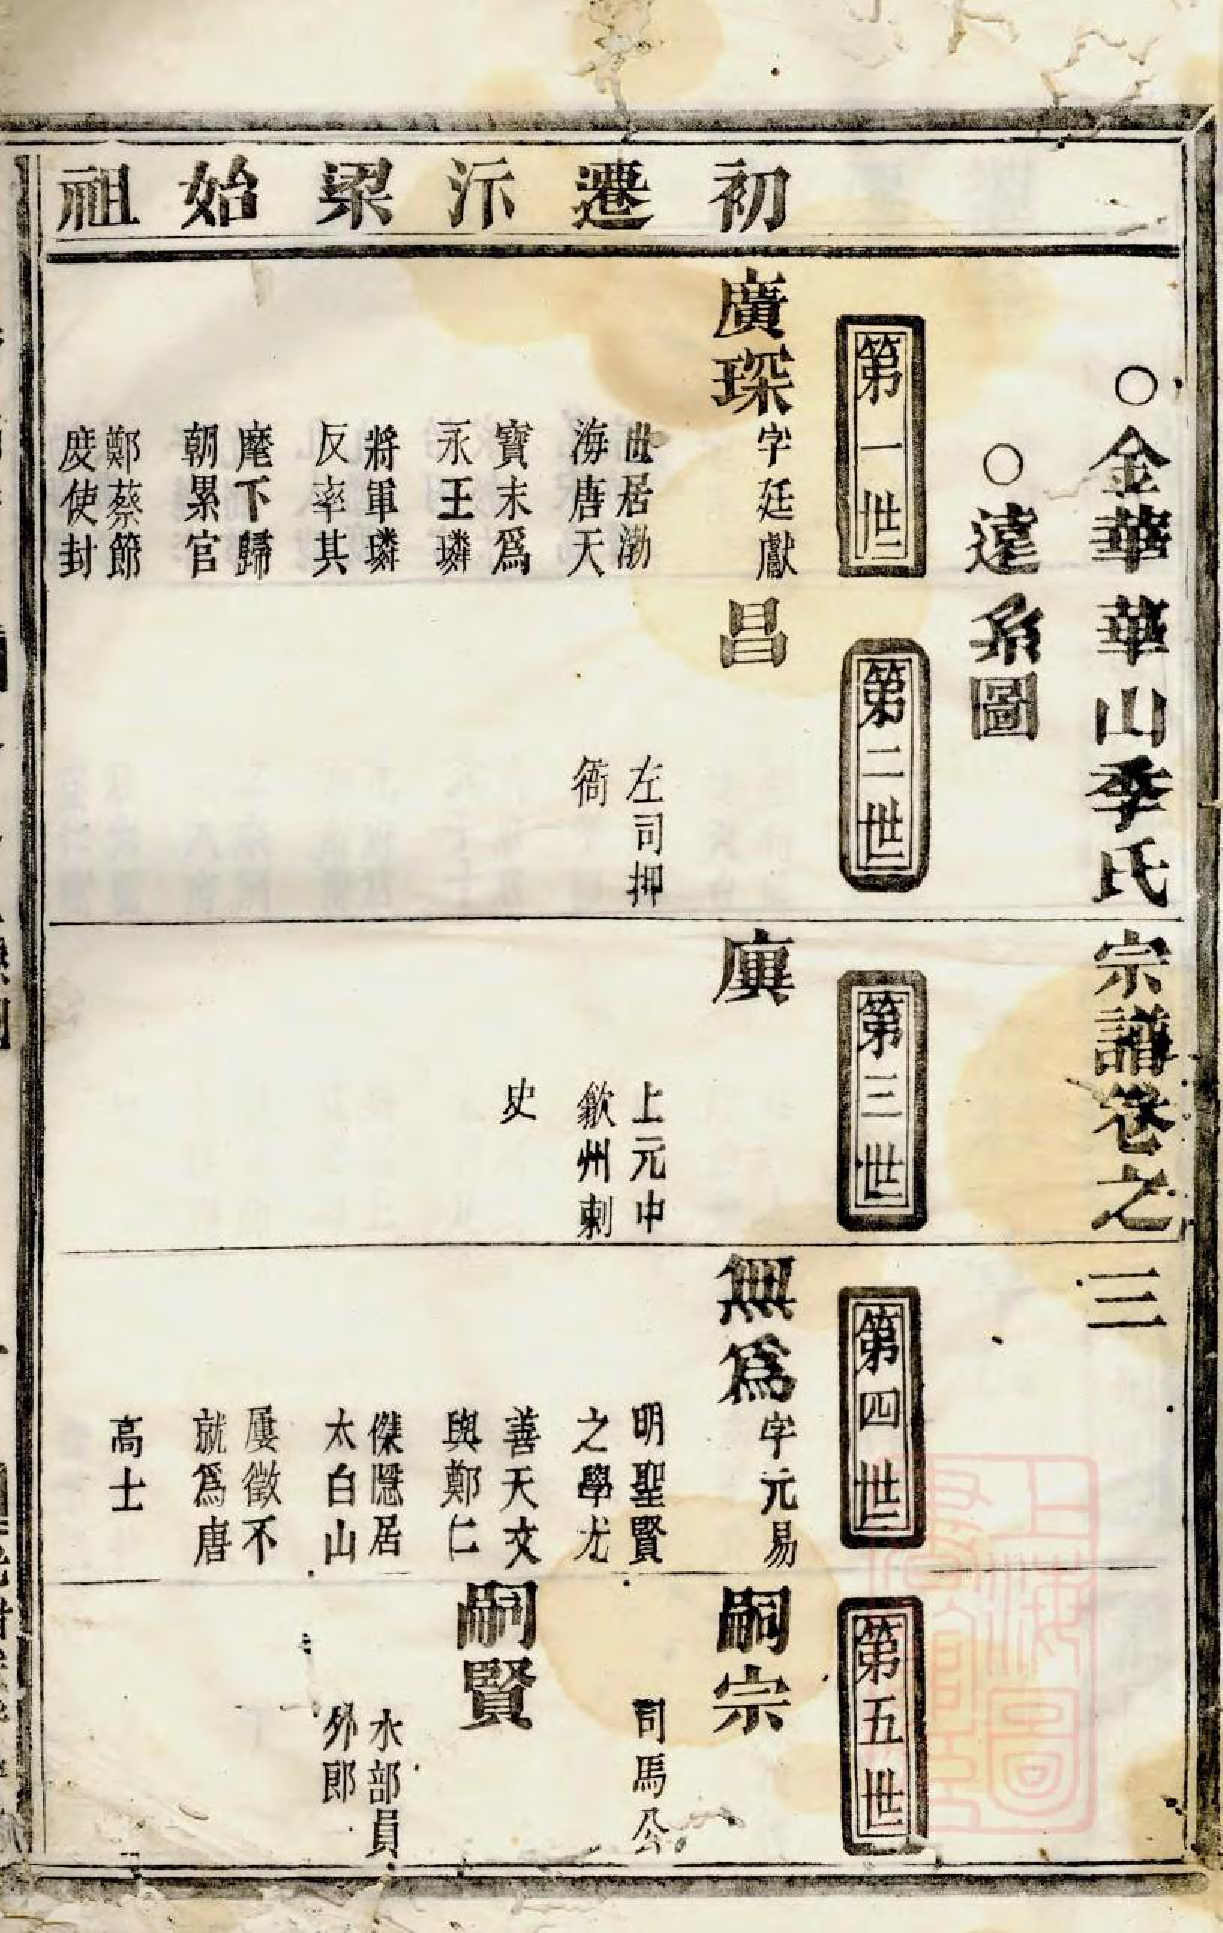 金華華山季氏宗譜卷之三
遠系圖
初遷汴梁始祖
第一世
廣琛字廷獻
世居渤
海唐天
寶末為
永王璘
將軍璘
反率其
麾下歸
朝累官
鄭蔡節
度使封
第二世
昌
左司押
衙
第三世
廙
上元中
歙州刺
史
第四世
無為字元易
明聖賢
之學尤
善天文
與鄭仁
傑隱居
太白山
屢徵不
就為唐
高士
第五世
嗣宗
司馬公
嗣賢
水部員
外郎